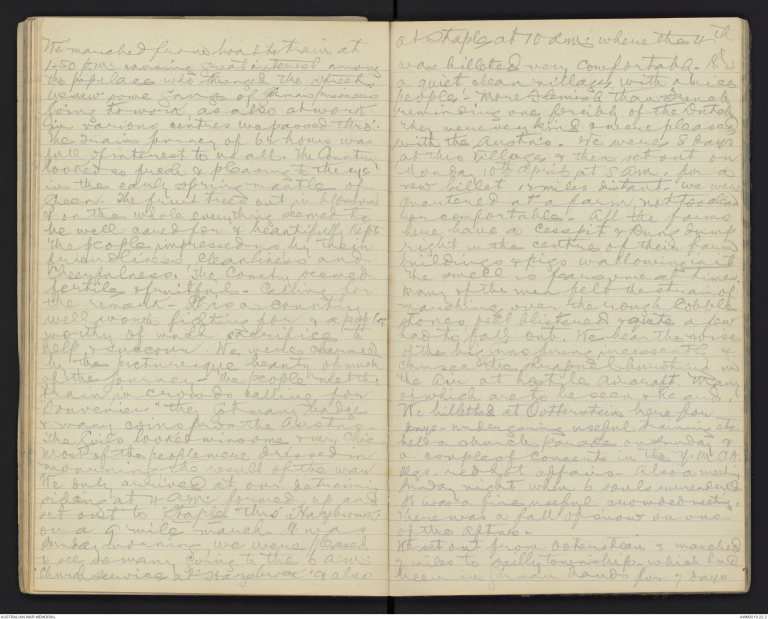 We marched from boat to train at
1-50 p.m. causing great interest among
the populace who thronged the streets
we saw some gangs of German prisoners
going to work as also at work
in various centres we passed thro'.
The train journey of 62 hours was
full of interest to us all. The Country
looked so fresh & pleasing to the eye
in the early spring mantle of
Green. The fruit trees out in blossom
& on the whole everything seemed to
be well cared for & beautifully kept
The people impressed us by their
friendliness, cleanliness and
Cheerfulness. The Country seemed
fertile & fruitful. Calling for
the remark - It is a country
well worth fighting for & a people
worthy of much sacrifice to
help & succour. We were charmed
by the picturesque beauty of much
of the journey - The people met the
train in crowds calling for
"Souveniers" they got many badges
& many coins from the Austns.
The Girls looked winsome & very Chic
Most of the people were dressed in
mourning the result of the war
We only arrived at our detraining
siding at 4 a.m. formed up and
set out to Staple thro' Hazebrouck
on a 9 mile march. It was
Sunday morning we were pleased
to see so many going to the 6 a.m.
Church service at Hazebrouck & also
at Staple at 10 a.m. where the 4th
was billeted very comfortable. It is
a quiet clean village, with a nice
people. More Flemish than French
reminding one forcibly of the Dutch
They were very kind & were pleased
with the Austn's. We were 8 days
at this Village & then set out on
Monday 10th April at 5 A.M. for a
new billet 17 miles distant. We were
quartered at a farm not too clean
nor comfortable. All the farms
here have a Cesspit & Dung dump
right in the centre of their farm
buildings & pigs wallowing in it
The smell is fearsome at times.
Many of the men felt the strain of
marching over the rough Cobble
stones feet blistered & quite a few
had to fall out. We hear the noise
of the big guns firing incessantly &
can see the shrapnel bursting in
the air at hostile Aircraft. Many
of which are to be seen & heard.
We billeted at Outtersteen here for
days - undergoing useful training etc
held a church Parade on Sunday &
a couple of Concerts in the Y.M.C.A.
red hot affairs - Also a meeting
Sunday night when 6 souls surrendered
It was a fine useful crowded meeting.
There was a fall of snow on one
of the
We set out from Outersteen & marched
7 miles to Sailly township. which had
been in German hands for 7 days
AUSTRALIAN WAR MEMORIAL